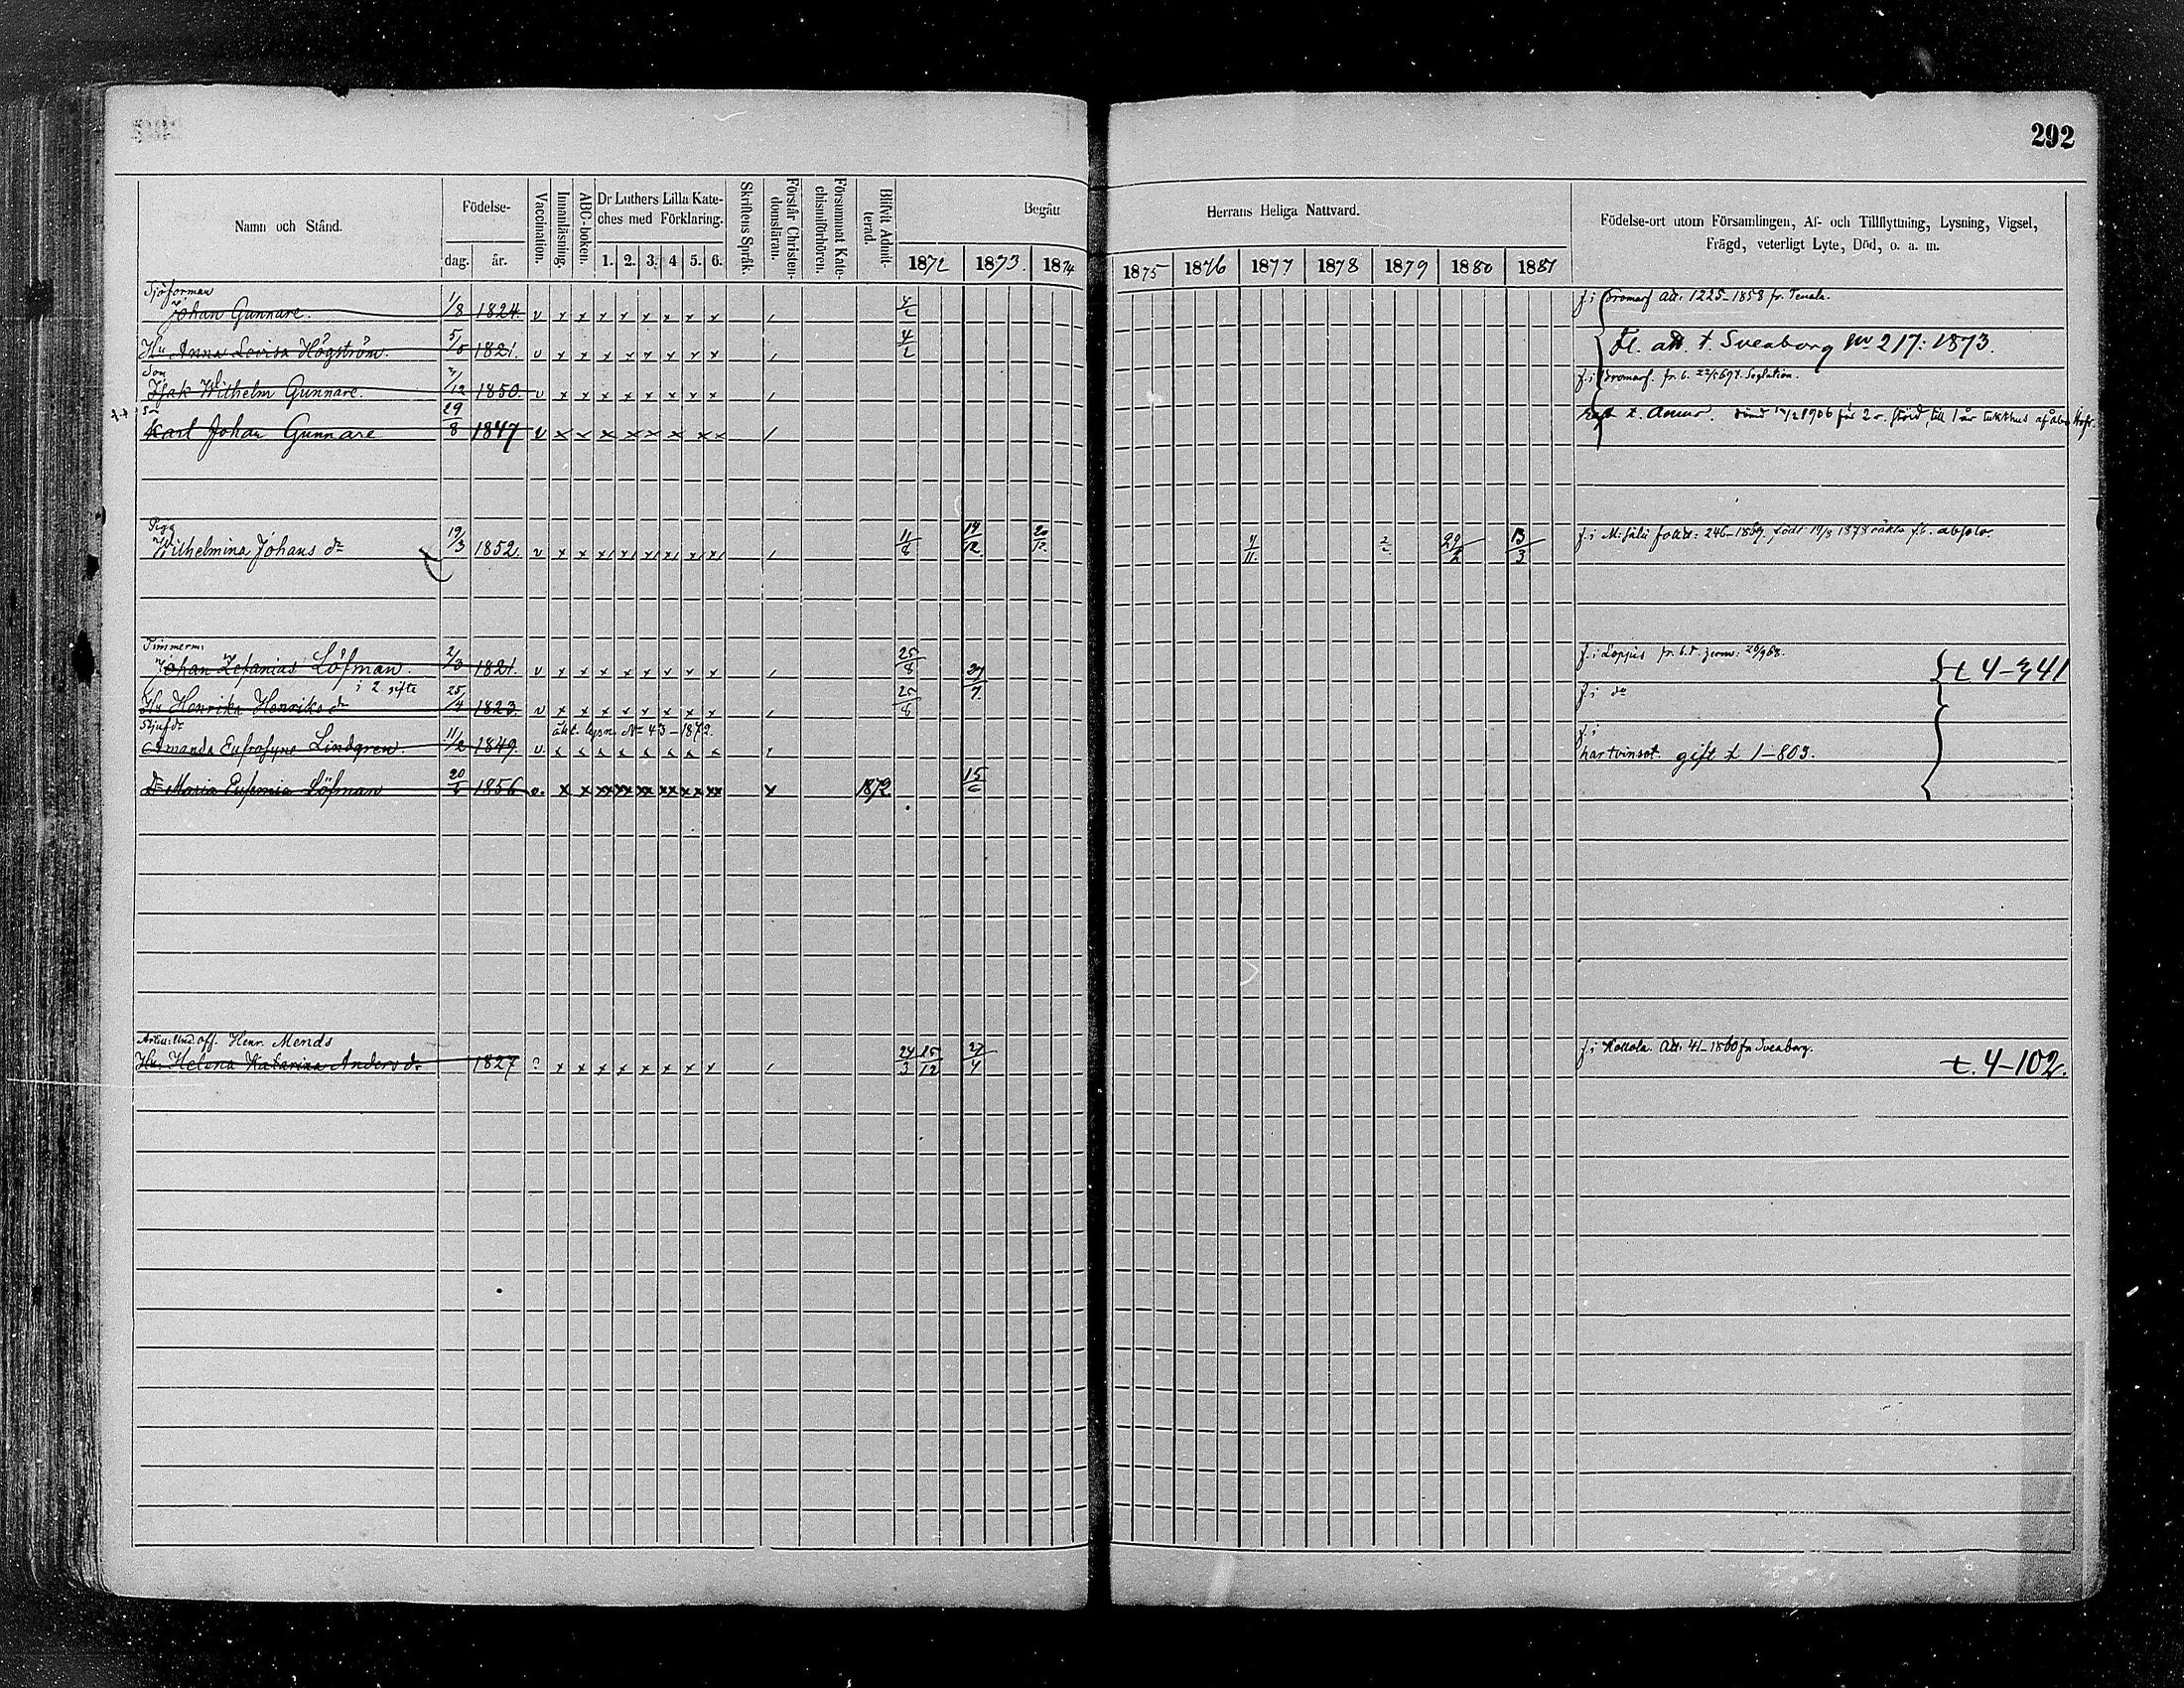 292
Namn och Stånd.
Födelse-
dag.
år.
Vaccination.
Innanläsning.
ABC-boken.
Dr Luthers Lilla Kate-
ches med Förklaring.
1. 2. 3. 4 5. 6.
Skriftens Språk.
Förstår Christen-
domsläran.
Försummat Kate-
chismiförhören.
Blifvit Admit-
terad.
Begått
Herrans Heliga Nattvard.
1872 1873. 1874
1875 1876 1877 1878 1879 1880 1881
Födelse-ort utom Församlingen, Af- och Tillflyttning, Lysning, Vigsel,
Frägd, veterligt Lyte, Död, o. a. m.
Sjöforman
Johan Gunnare. 1/8 1824. v x x x x x x x x 4/2 f. i Bromarf att. 1225-1858 fr. Tenala.
Hu Anna Lovisa Högström. 1821. v x x x x x x x x 4/2 Fl. att. t. Sveaborg No 217: 1873.
Son
Isak Wilhelm Gunnare. /12 1850. v x x x x x x x x f. i Bromarf.
Son
Karl Johan Gunnare 29/8 1847 v x x x x x x x x t. Amur. 1906 för 2 r. stöld, till 1 år tukthus af åbo Hofr.
Piga
Wilhelmina Johans dr 19/3 1852. v 11/8 14/12. 20/12. 4/11. 29/2 13/3 f. i 246-1869. född 19/3 1878 absolv.
Timmerm:
Johan Zefanias Löfman. 2/3 1821. v x x x x x x x x 25/8 f. i Loppis t 4-341
i 2 gifte
Hu Henrika Henriks dr 25/4 1823. v x x x x x x x x 25/8 f. i do
Styfdr
äkt. lysn. No 43-1872.
Amanda Eufrosyne Lindgren 11/2 1849. v. x x x x x x x x f. i
har tvinsot. gift t 1-803.
Dr Maria Eufemia Löfman 20/ 1856 v. x x xx xx xx xx xx xx x 1872 15/6
Artill: Und. off. Henr. Mends
Hu. Helena Katarina Anders dr 1827 ? x x x x x x x x 24/3 15/12 27/4 f. i Kollola. Att. 41-1860 fr Sveaborg. t. 4-102.